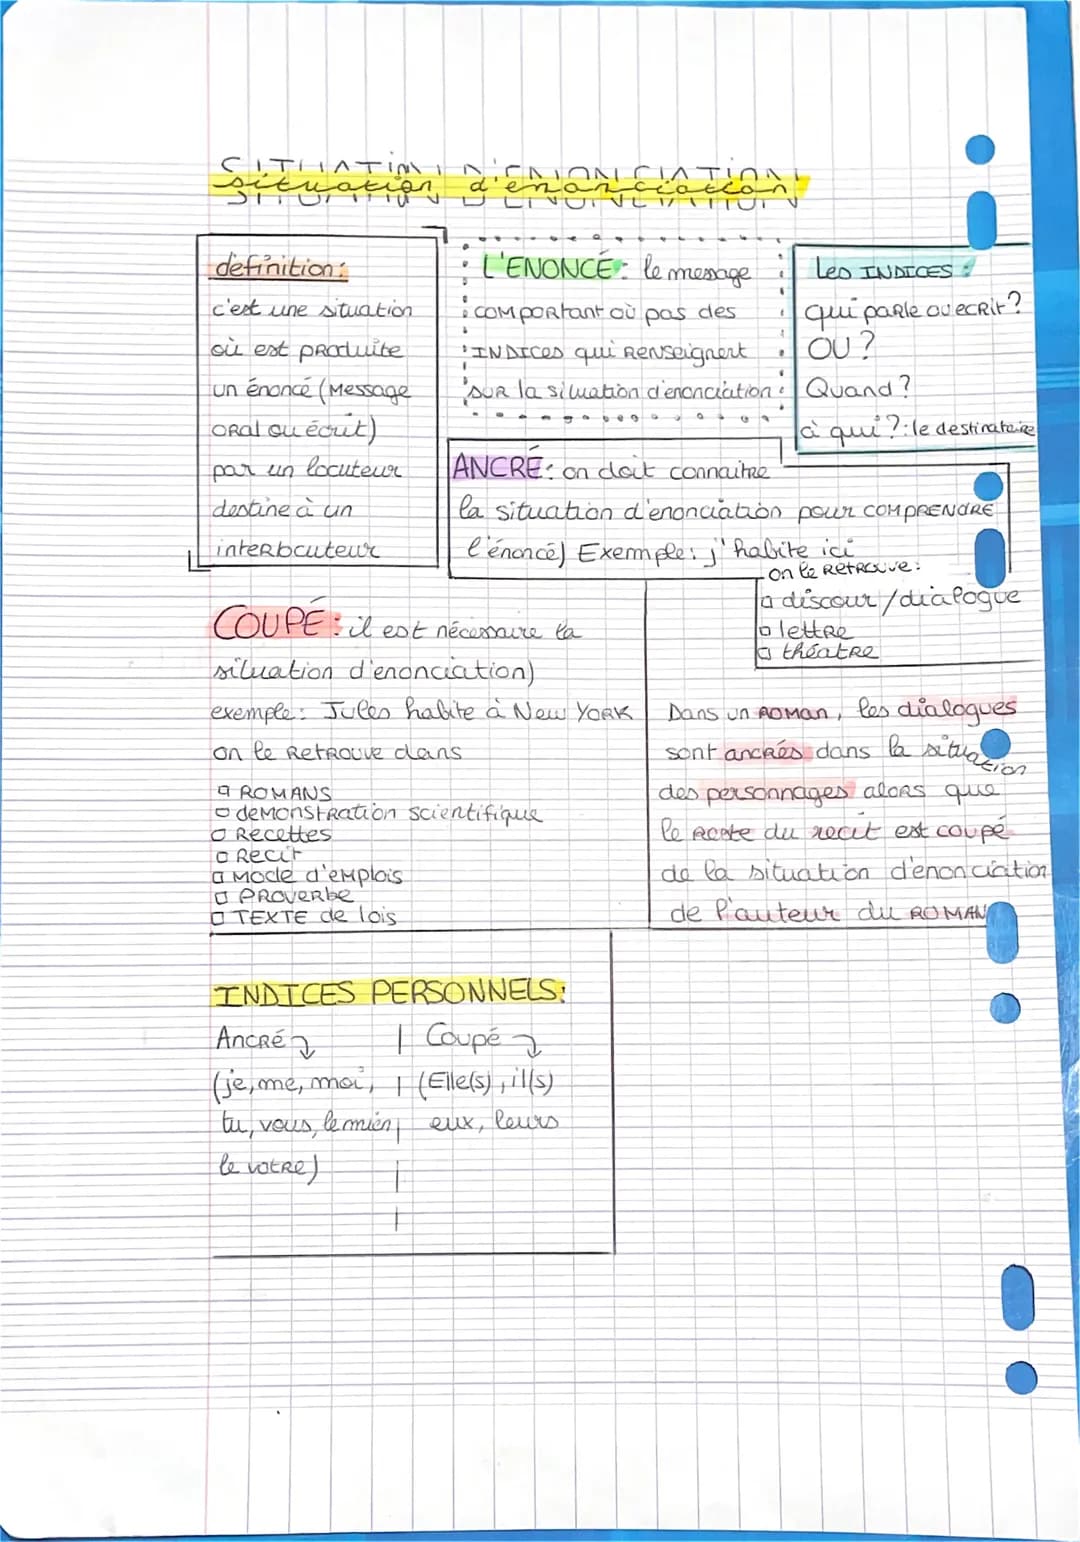 situation d'enonciation
définition:
c'est une situation
où est produite
un énoncé (Message
oral ou écrit)
par un locuteur
destine à un
interlocuteur
L'ENONCÉ: le message
comportant où pas des
INDICES qui renseignent
sur la situation d'enonciation
Les INDICES:
qui parle ou ecrit?
OU?
Quand?
à qui?: le destinataire
ANCRÉ: on doit connaitre
la situation d'enonciation pour comprendre
l'énoncé) Exemple: j'habite ici
on le retrouve:
discour/dialogue
lettre
théatre
COUPÉ: il est nécessaire la
situation d'enonciation)
exemple: Jules habite à New York
on le retrouve dans
ROMANS
demonstration scientifique
Recettes
Recit
Mode d'emplois
Proverbe
TEXTE de lois
Dans un roman, les dialogues
sont ancrés dans la situation
des personnages alors que
le reste du recit est coupé
de la situation d'enonciation
de l'auteur du ROMAN
INDICES PERSONNELS:
Ancré | Coupé
(je, me, moi, | (Elle(s), il(s)
tu, vous, le mien | eux, leurs
le votre)